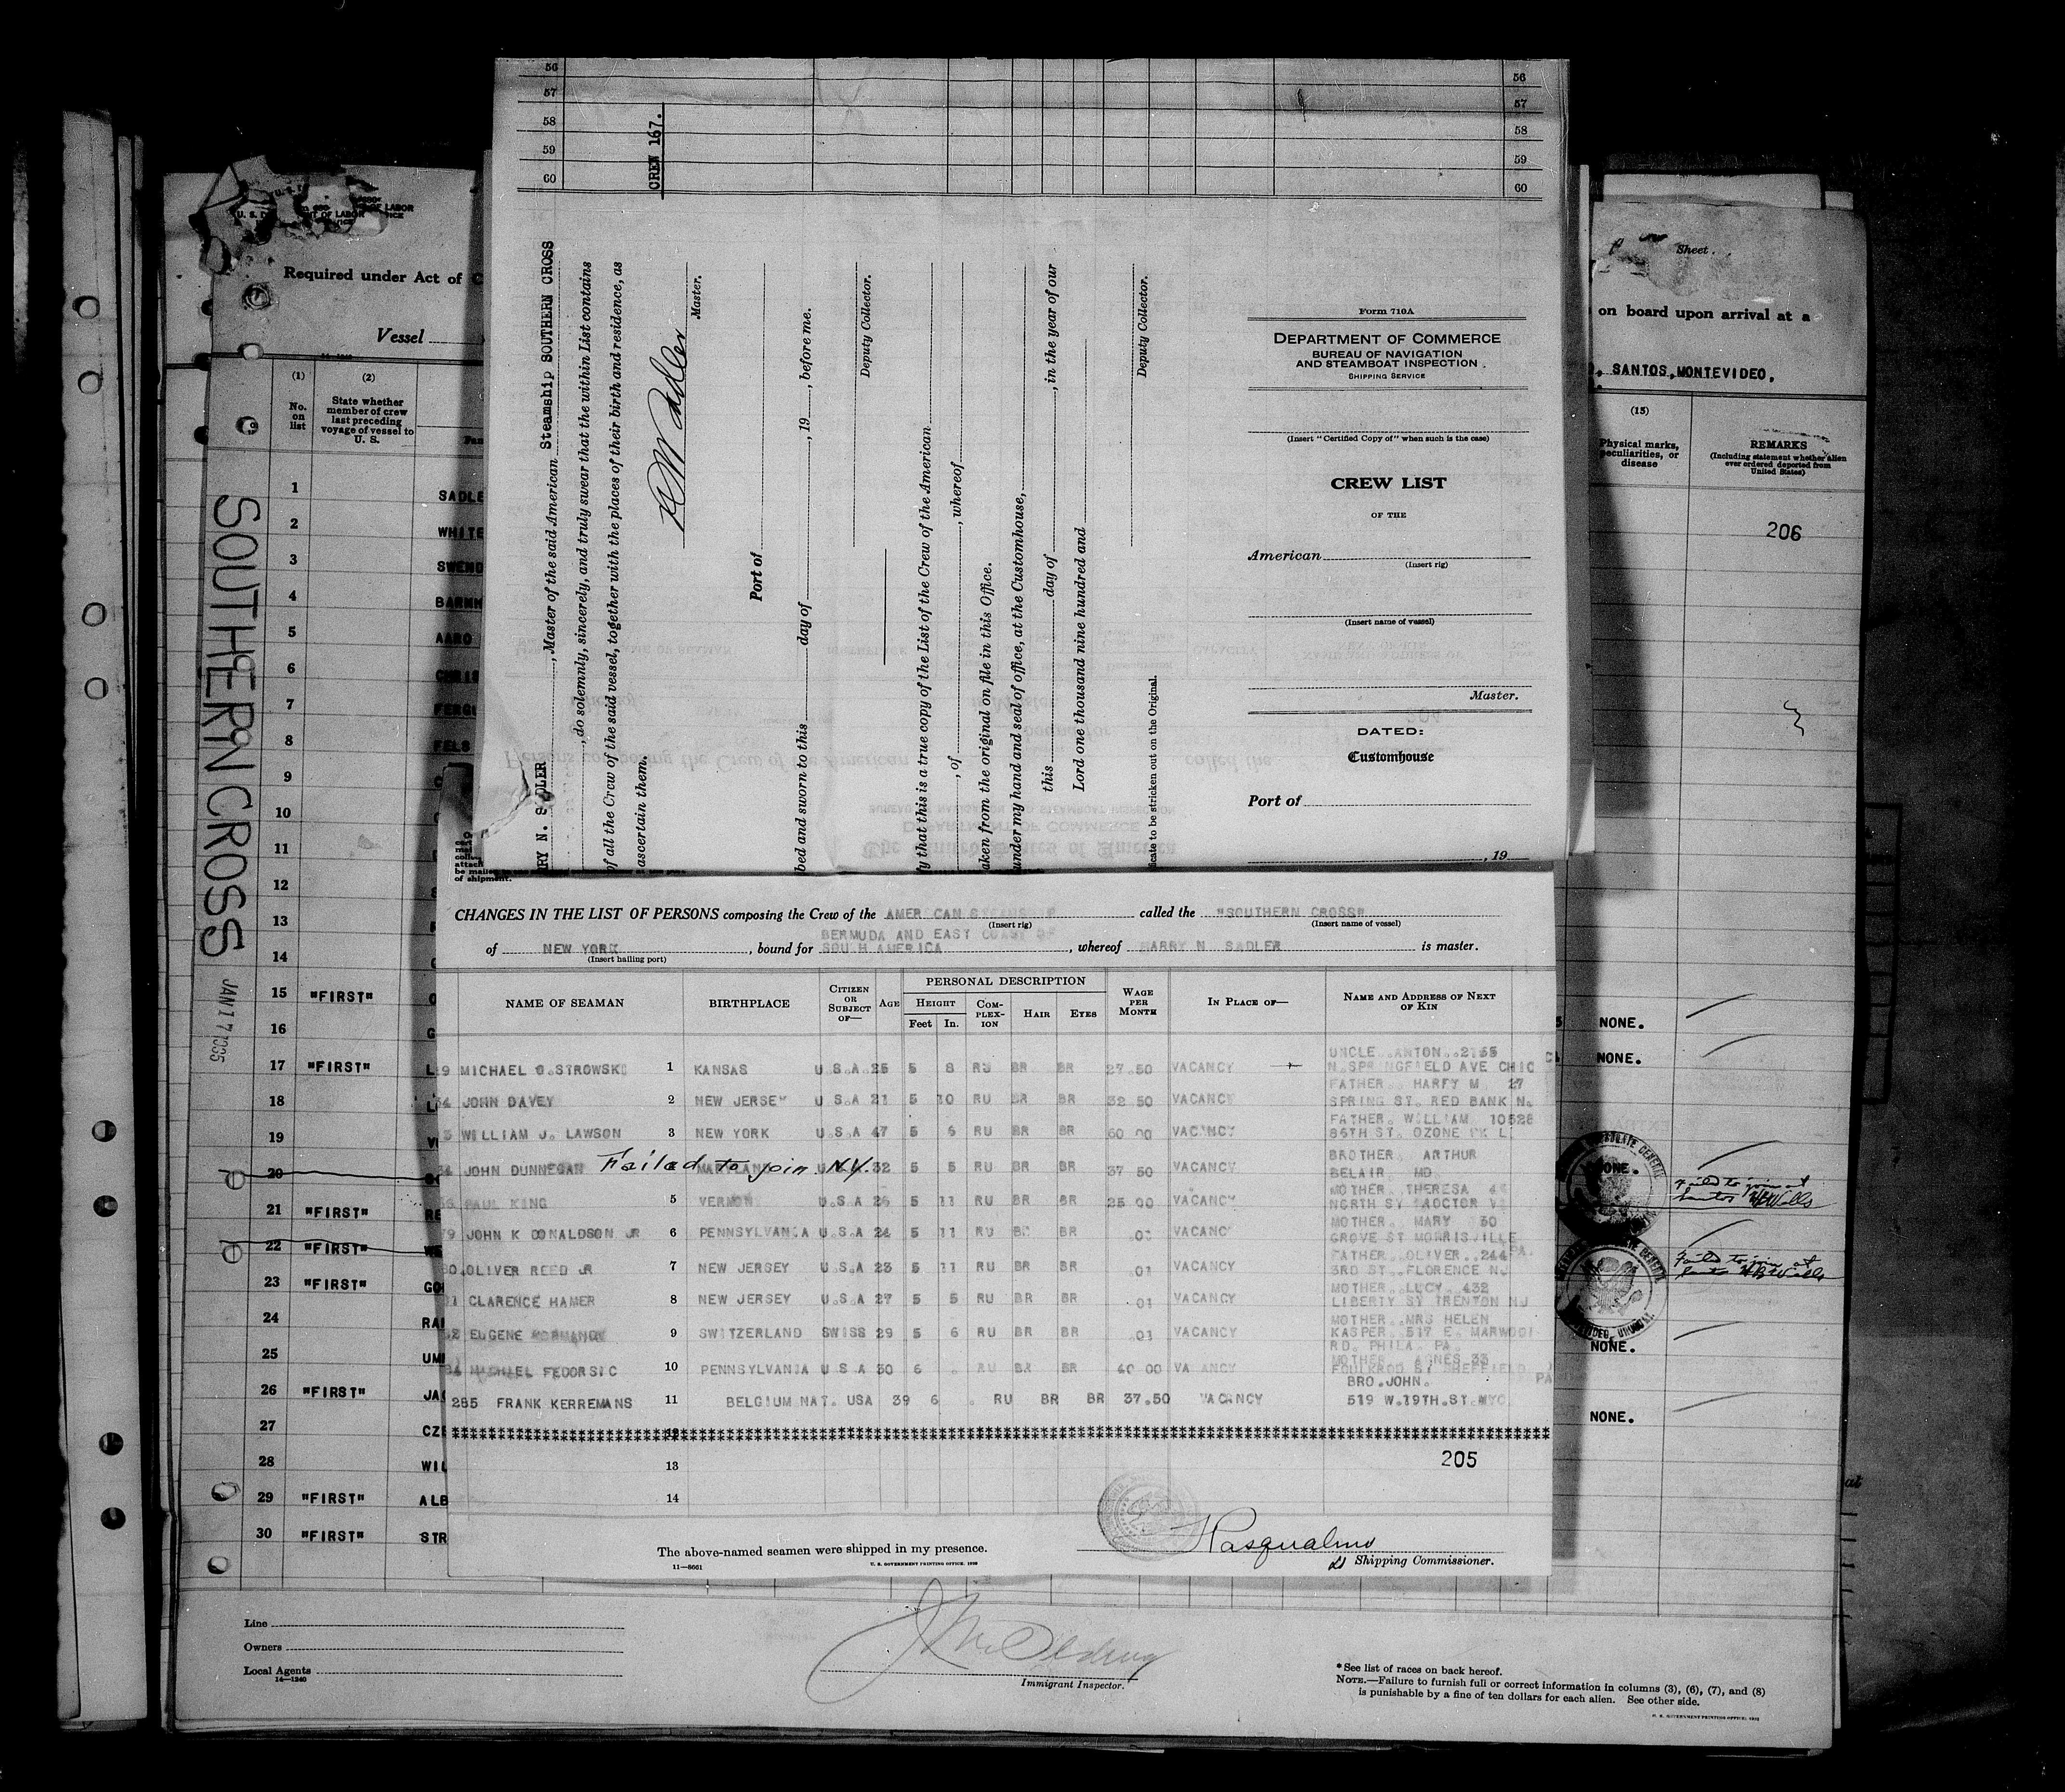 56 56
57 57
58 58
59 59
60 60
CREW 167.
RY N. SADLER, Master of the said American Steamship SOUTHERN CROSS
, do solemnly, sincerely, and truly swear that the within List contains
of all the Crew of the said vessel, together with the places of their birth and residence, as
ascertain them.
Master.
Port of
bed and sworn to this day of , 19 , before me.
Deputy Collector.
y that this is a true copy of the List of the Crew of the American
, of , whereof
aken from the original on file in this Office.
under my hand and seal of office, at the Customhouse,
this day of , in the year of our
Lord one thousand nine hundred and
Deputy Collector.
ficate to be stricken out on the Original.
Form 710A
DEPARTMENT OF COMMERCE
BUREAU OF NAVIGATION
AND STEAMBOAT INSPECTION
SHIPPING SERVICE
(Insert "Certified Copy of" when such is the case)
CREW LIST
OF THE
American
(Insert rig)
(Insert name of vessel)
Master.
DATED:
Customhouse
Port of
, 19
Required under Act of C
Vessel
(1) (2)
No. on list
State whether member of crew last preceding voyage of vessel to U. S.
SOUTHERN CROSS
JAN 17 1935
1 SADLE
2 WHITE
3 SWEND
4 BARNH
5 AARO
6 CHRIS
7 FERGU
8 FELS
9
10
11
12
13
14
15 "FIRST"
16
17 "FIRST"
18
19
20
21 "FIRST"
22 "FIRST"
23 "FIRST"
24 RAI
25 UMI
26 "FIRST" JA
27 CZE
28 WIL
29 "FIRST" ALB
30 "FIRST" STR
Sheet
on board upon arrival at a
SANTOS, MONTEVIDEO,
(15)
Physical marks, peculiarities, or disease
REMARKS
(Including statement whether alien ever ordered deported from United States)
206
NONE.
NONE.
NONE.
Failed to join at
Santos
Failed to join at
Santos
NONE.
NONE.
be mailed
of shipment.
CHANGES IN THE LIST OF PERSONS composing the Crew of the AMERICAN called the "SOUTHERN CROSS"
(Insert rig) (Insert name of vessel)
of NEW YORK, bound for BERMUDA AND EAST COAST OF SOUTH AMERICA, whereof HARRY N SADLER is master.
(Insert hailing port)
NAME OF SEAMAN BIRTHPLACE CITIZEN OR SUBJECT OF— AGE PERSONAL DESCRIPTION WAGE PER MONTH IN PLACE OF— NAME AND ADDRESS OF NEXT OF KIN
HEIGHT COMPLEXION HAIR EYES
Feet In.
MICHAEL O.STROWSKI 1 KANSAS U.S.A 25 5 8 RU BR BR 27.50 VACANCY UNCLE ANTON 2155 N.SPRINGFIELD AVE CHIC
JOHN DAVEY 2 NEW JERSEY U S.A 21 5 10 RU BR BR 32 50 VACANCY FATHER HARRY M 27 SPRING ST. RED BANK N.
WILLIAM J. LAWSON 3 NEW YORK U.S.A 47 5 6 RU BR BR 60 00 VACANCY FATHER. WILLIAM 10528 86TH ST. OZONE PK L
JOHN DUNNEGAN Failed to join N.Y. MARYLAND 32 5 5 RU BR BR 37 50 VACANCY BROTHER ARTHUR BELAIR MD
PAUL KING 5 VERMONT U.S.A 26 5 11 RU BR BR 25 00 VACANCY MOTHER THERESA NORTH ST PROCTOR
JOHN K DONALDSON JR 6 PENNSYLVANIA U.S.A 24 5 11 RU BR BR .01 VACANCY MOTHER MARY 30 GROVE ST MORRISVILLE PA.
OLIVER REED JR 7 NEW JERSEY U.S.A 23 5 11 RU BR BR .01 VACANCY FATHER OLIVER 244 3RD ST FLORENCE NJ
CLARENCE HAMER 8 NEW JERSEY U.S.A 27 5 5 RU BR BR .01 VACANCY MOTHER LUCY 432 LIBERTY ST TRENTON NJ
EUGENE 9 SWITZERLAND SWISS 29 5 6 RU BR BR .01 VACANCY MOTHER MRS HELEN KASPER 517 E. MARWOOD RD. PHILA. PA.
MICHAEL FEDORSIC 10 PENNSYLVANIA U S A 30 6 . RU BR BR 40 00 VACANCY MOTHER AGNES 33 FOULKROD ST SHEFFIELD PA
285 FRANK KERREMANS 11 BELGIUM NAT. USA 39 6 . RU BR BR 37.50 VACANCY BRO.JOHN. 519 W.19TH.ST NYC
13 205
14
The above-named seamen were shipped in my presence.
Pasqualino
Shipping Commissioner.
11—8661 U. S. GOVERNMENT PRINTING OFFICE
Line
Owners
Local Agents
14—1240
Immigrant Inspector.
* See list of races on back hereof.
NOTE.—Failure to furnish full or correct information in columns (3), (6), (7), and (8)
is punishable by a fine of ten dollars for each alien. See other side.
U. S. GOVERNMENT PRINTING OFFICE